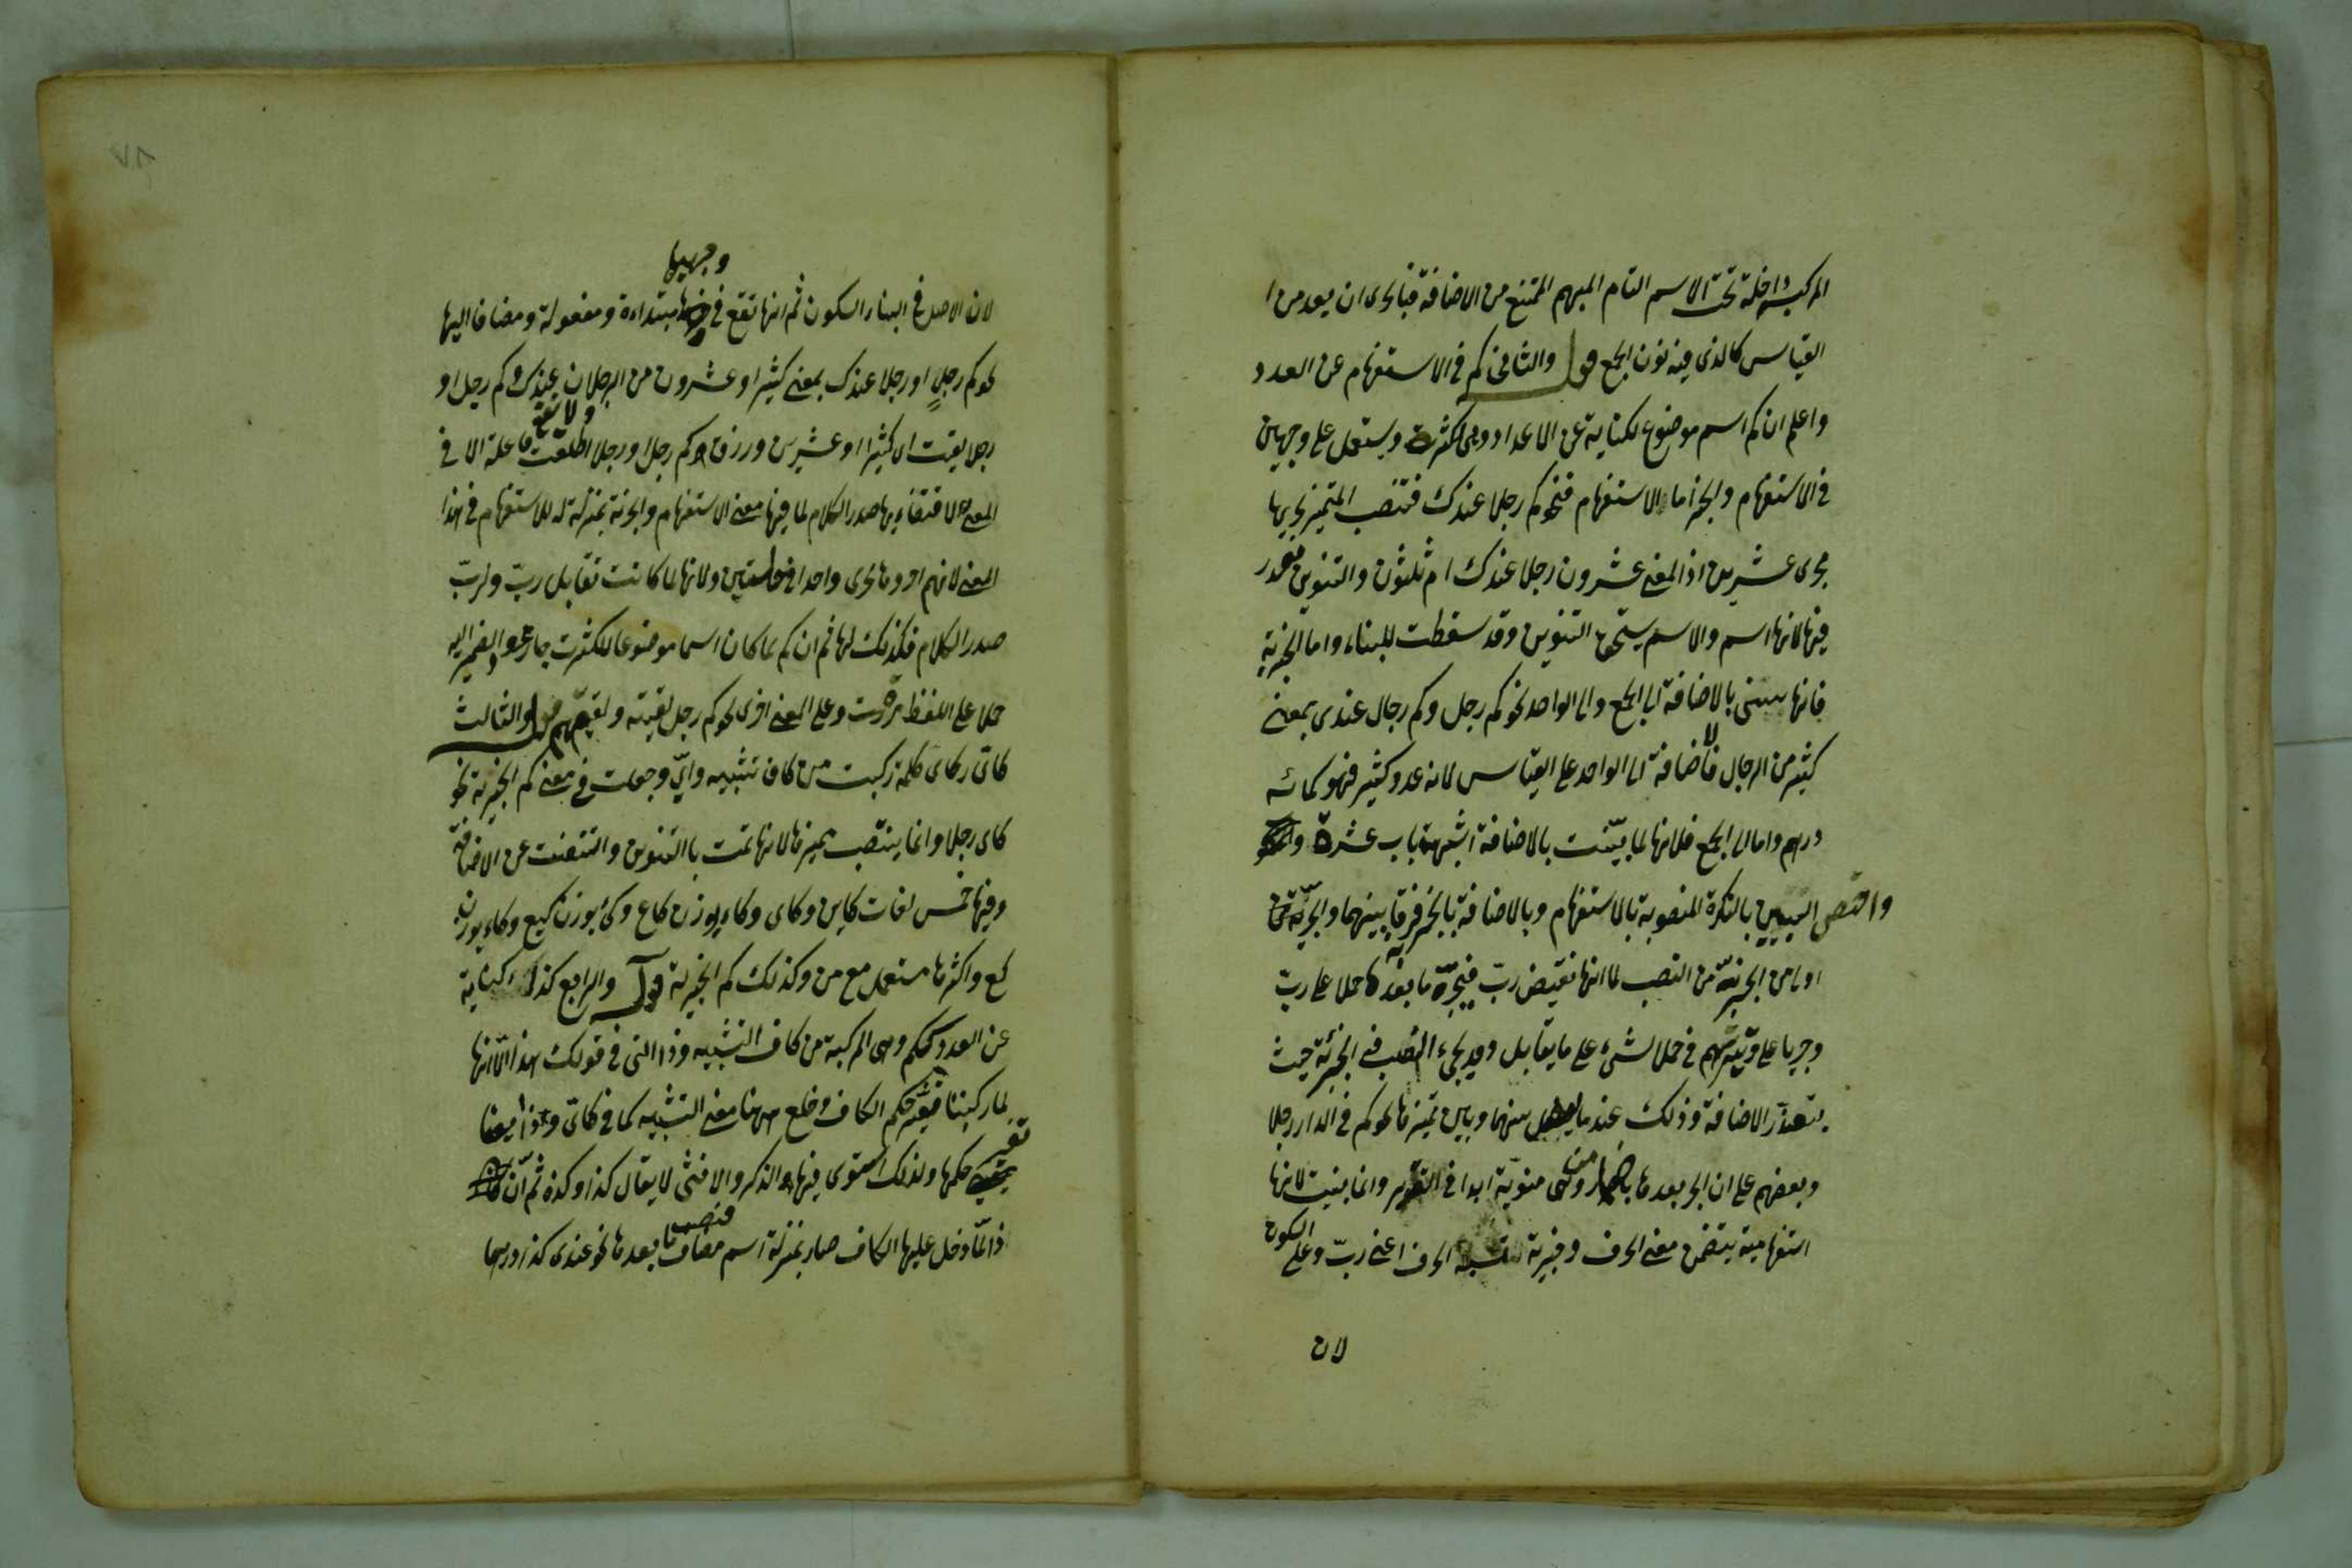 المركبة داخلة تحت الاسم التام المبهم الممتنع من الاضافة فبالحرى ان يعد من
القياس كالذى فيه نون الجمع قوله والثانى كم فى الاستفهام عن العدد
واعلم ان كم اسم موضوع لكناية عن الاعداد وهى لكثرت ويستعمل على وجهين
فى الاستفهام والخبر اما الاستفهام فنحو كم رجلا عندك فتنصب المميز تجريها
مجرى عشرين اذ المعنى عشرون رجلا عندك ام ثلثون والتنوين مقدر
فيها لانها اسم والاسم يستحق التنوين وقد سقطت للبناء واما الخبرية
فانها تبين بالاضافة الى الجمع والى الواحد نحو كم رجل وكم رجال عندى بمعنى
كثير من الرجال فالاضافة الى الواحد على القياس لانه عدد كثير فهو كمائه
درهم واما الى الجمع فلانها لما بيّنت بالاضافة اشبهت باب عشرة
واختص التبيين بالنكرة المنصوبة بالاستفهام وبالاضافة بالخبر فرقا بينهما والخبريّة
اولى من الخبريّة من النصب لما انها نقيض ربّ فيجرّ ما بعدها حملا على ربّ
وجريا على وتيرتهم فى حمل الشىء على ما يقابل وقد يجىء النصب فى الخبريّة حيث
يتعذر الاضافة وذلك عند ما يفصل بينهما وبين تميزها نحو كم فى الدار رجلا
وبعضهم على ان الجر بعدها باضمار من وهى منويّة ابدا فى التقدير وانما بنيت لانها
استفهامية يتضمن معنى الحرف وخبرية الحرف اعنى ربّ وعلى السكون
لان
٧٨
وجهيها
لان الاصل فى البناء السكون ثم انها تقع فى مبتداءة ومفعولة ومضافا اليها
نحو كم رجلٍ او رجلا عندك بمعنى كثير او عشرون من الرجلان عندك وكم رجل او
رجلا لقيت اى كثيرا او عشرين ورزق كم رجل او رجلا اطلقت ولا تقع فاعلة الا فى
المعنى لاقتضاءها صدر الكلام لما فيها معنى الاستفهام والخبرية بمنزلة له للاستفهام فى هذا
المعنى لانهم اوردها مجرى واحدا فى ولانها لما كانت تقابل ربّ ولربّ
صدر الكلام فكذلك لها ثم ان كم لما كان اسما موضوعا للكثرت جاز عود الضمير اليه
حملا على اللفظ مرّة وعلى المعنى اخرى نحو كم رجل لقيته ولقيتهم قوله والثالث
كائ ركاى كلمة ركبت من كاف تشبيه واىّ وجعلت فى معنى كم الخبرية نحو
كاى رجلا وانما ينتصب مميزها لانها تمت بالتنوين وامتنعت عن الاضافة
وفيها خمس لغات كاين وكاى وكاء بوزن كاع وكئ بوزن كيع وكاء بوزن
كع واكثرها مستعمل مع من وكذلك كم الخبرية قوله والرابع كذا كناية
عن العدد ككم وهى المركبة من كاف التشبيه وذا التى فى قولك هذا الا انها
لما ركبتا تغيّر حكم الكاف وخلع منها معنى التشبيه كما فى كائ وذا ايضا
تغير حكمها ولذلك استوى فيها الذكر والانثى لا يقال كذا وكذه ثم انّ
ذا لمّا دخل عليها الكاف صار بمنزلة اسم مضاف فنصب ما بعدها نحو عندى كذا درهما